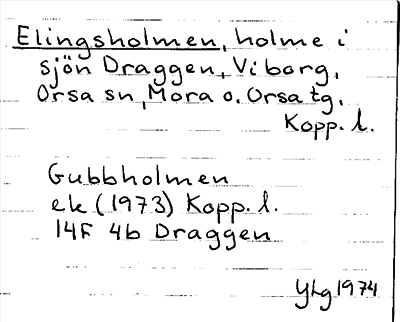 Elingsholmen, holme i
sjön Draggen, Viborg,
Orsa sn, Mora o. Orsa tg,
Kopp. l.
Gubbholmen
ek (1973) Kopp. l.
14F 4b Draggen
YLg 1974